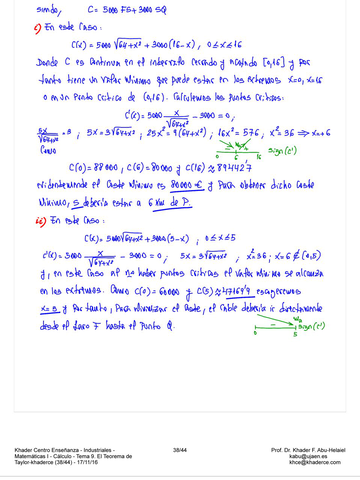 siendo, C = 5000 FS + 3000 SQ
i) En este caso:
C(x) = 5000√(64+x²) + 3000(16-x), 0≤x≤16
Donde C es continua en el intervalo cerrado y acotado [0,16] y por
tanto tiene un valor mínimo que puede estar en los extremos x=0, x=16
o en un punto crítico de (0,16). Calculemos los puntos críticos:
C'(x) = 5000 x/√(64+x²) - 3000 = 0,
5x/√(64+x²) = 3 ; 5x = 3√(64+x²) ; 25x² = 9(64+x²) ; 16x² = 576, x² = 36 ⇒ x=+6
Como
0 6 16 sign(C')
C(0) = 88000, C(6) = 80000 y C(16) ≈ 89442'7
evidentemente el coste mínimo es 80000 € y para obtener dicho coste
mínimo, S debería estar a 6 km de P.
ii) En este caso:
C(x) = 5000√(64+x²) + 3000(5-x) ; 0≤x≤5
C'(x) = 5000 x/√(64+x²) - 3000 = 0, 5x = 3√(64+x²), x² = 36 ; x=6 ∉ (0,5)
y, en este caso al no haber puntos críticos el valor mínimo se alcanza
en los extremos. Como C(0) = 55000 y C(5) ≈ 47169'9 escogeremos
x=5 y por tanto, para minimizar el coste, el cable debería ir directamente
desde el faro F hasta el punto Q.
0 5 sign(C')
Khader Centro Enseñanza - Industriales -
Matemáticas I - Cálculo - Tema 9. El Teorema de
Taylor-khaderce (38/44) - 17/11/16
38/44
Prof. Dr. Khader F. Abu-Helaiel
kabu@ujaen.es
khce@khaderce.com